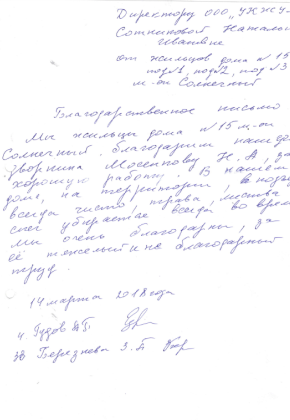 Директору ООО "УЖХ
Сотниковой Наталь
Ивановне
от жильцов дома №15
под №1, под №2, под №3
м-он Солнечный
Благодарственное письмо
Мы жильцы дома №15 м-он
Солнечный благодарим нашего
дворника Н, А, за
хорошую работу. В нашем
доме, на территории, в подъ
всегда чисто, трава, листва
снег убирается всегда во врем
мы очень благодарны, за
её тяжелый и не благодарный
труд.
14 марта 2018 года
4 Гудов
38 Березнева З. П